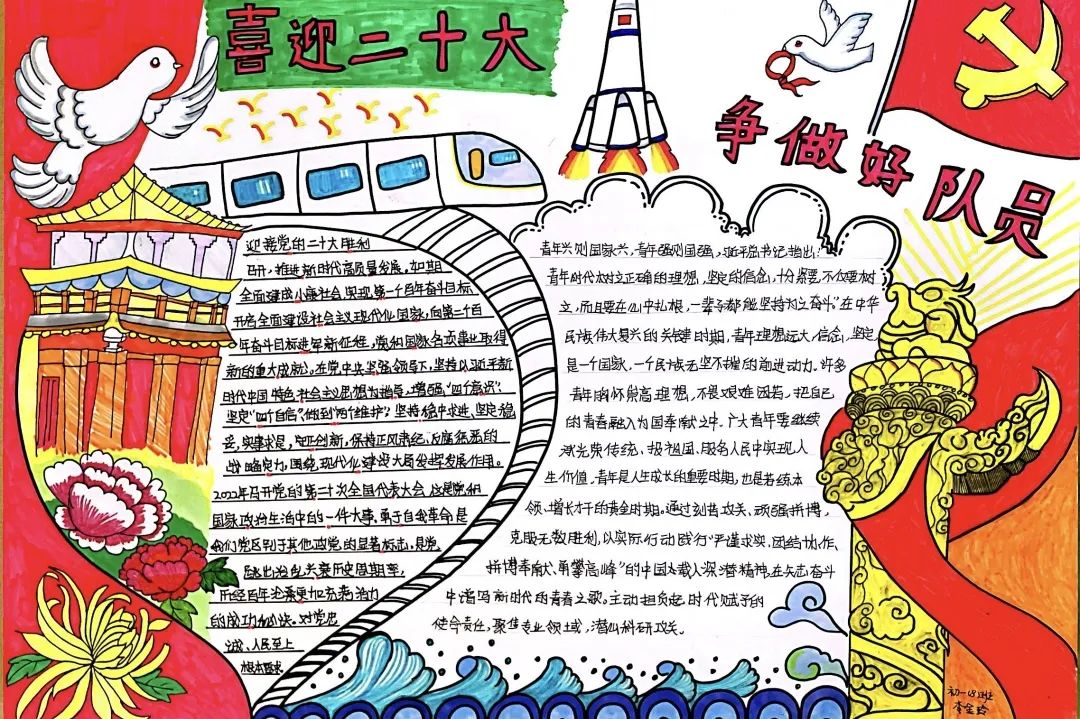 喜迎二十大
争做好队员
迎接党的二十大胜利
召开,推进新时代高质量发展,如期
全面建成小康社会实现第一个百年奋斗目标
开启全面建设社会主义现代化国家,向第二个百
年奋斗目标进军新征程,党和国家各项事业取得
新的重大成就。在党中央坚强领导下,坚持以习近平新
时代中国特色社会主义思想为指导,增强"四个意识"、
坚定"四个自信"、做到"两个维护",坚持稳中求进,坚定稳
妥,实事求是,守正创新,保持正风肃纪、反腐惩恶的
战略定力,围绕现代化建设大局发挥发展作用。
2022年召开党的第二十次全国代表大会,这是党和
国家政治生活中的一件大事。勇于自我革命是
我们党区别于其他政党的显著标志,是党
跳出治乱兴衰历史周期率,
历经百年沧桑更加充满活力
的成功秘诀。对党忠
诚、人民至上
根本要求
青年兴则国家兴,青年强则国强,习近平总书记指出:
青年时代树立正确的理想、坚定的信念,十分紧要,不仅要树
立,而且要在心中扎根,一辈子都能坚持为之奋斗"在中华
民族伟大复兴的关键时期,青年理想远大、信念坚定,
是一个国家、一个民族无坚不摧的前进动力。许多
青年胸怀崇高理想,不畏艰难困苦,把自己
的青春融入为国奉献之中。广大青年要继续
承光荣传统、报祖国、服务人民中实现人
生价值。青年是人生成长的重要时期,也是苦练本
领、增长才干的黄金时期。通过刻苦攻关、顽强拼搏,
克服无数胜利,以实际行动践行"严谨求实、团结协作、
拼搏奉献、勇攀高峰"的中国载人深潜精神,在矢志奋斗
中谱写新时代的青春之歌。主动担负起时代赋予的
使命责任,聚焦专业领域,潜心科研攻关。
初一(8)班
李金玲